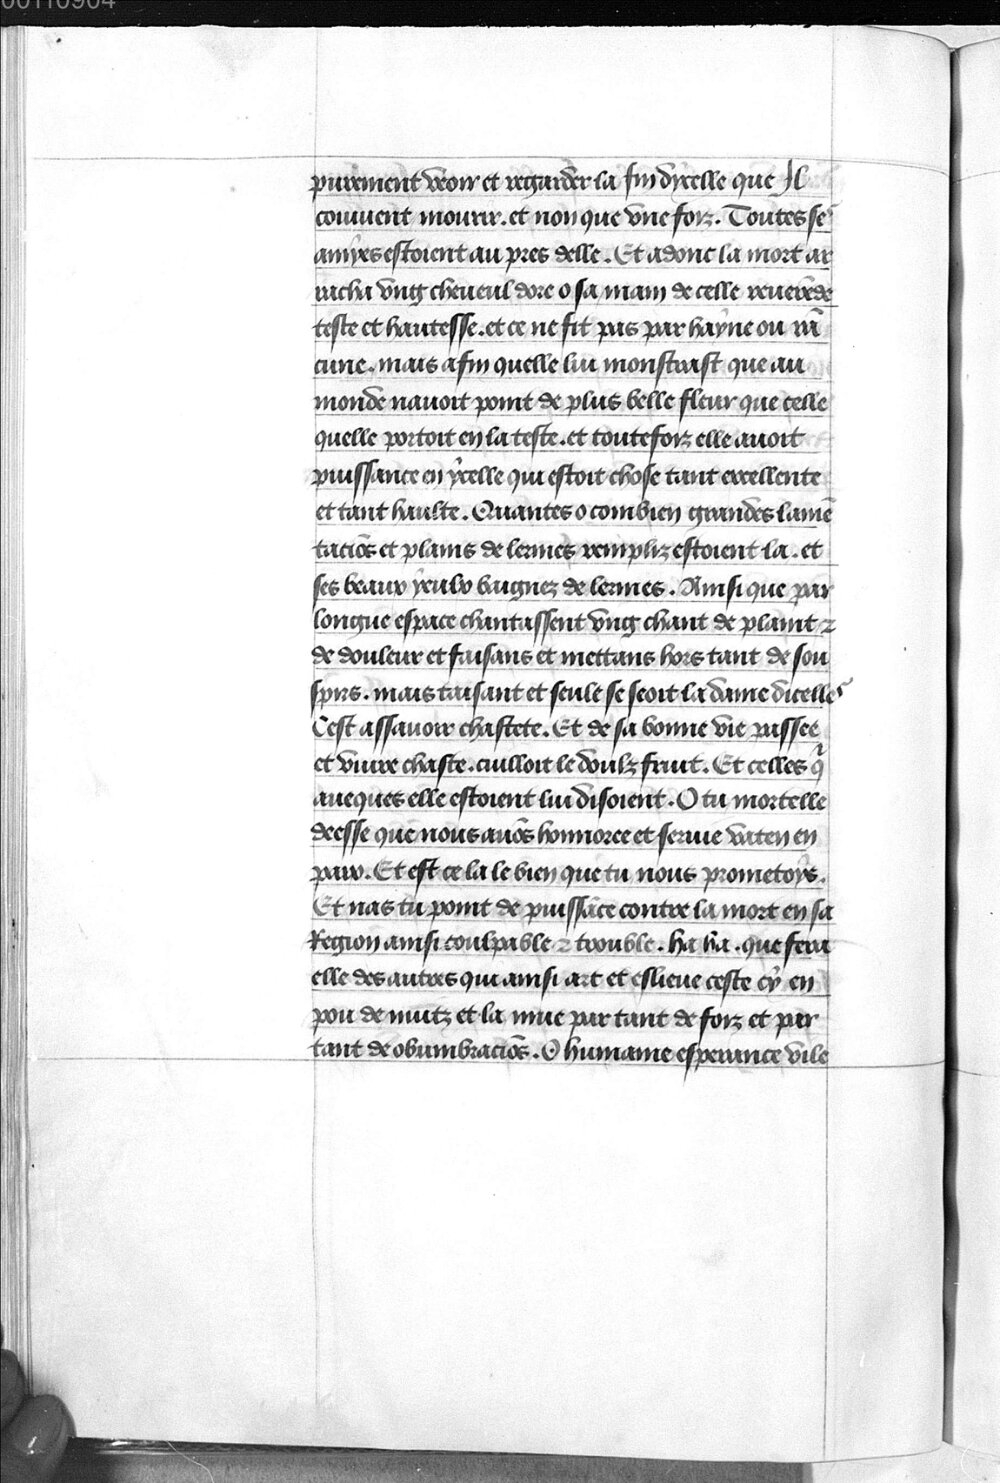 00110904
purement veoir et regarder la fin dycelle que Il
couuient mourir. et non que vne foiz. Toutes se
amyes estoient au pres delle. Et adonc la mort ar
racha vng cheueul dore o sa main de celle reuerede
teste et haultesse. et ce ne fit pas par hayne ou rā
cune. mais afin quelle lui monstrast que au
monde nauoit point de plus belle fleur que celle
quelle portoit en la teste. et touteffoiz elle auoit
puissance en ycelle qui estoit chose tant excellente
et tant haulte. Quantes o combien grandes lamē
tacioōs et plains de lermes rempliz estoient la. et
ses beaux yeulx baignez de lermes. Ainsi que par
longue espace chantassent vng chant de plaint ⁊
de douleur et faisans et mettans hors tant de sou
spirs. mais taisant et seule se seoit la dame dicelles
Cest assauoir chastete. Et de sa bonne vie passee
et viure chaste. cuilloit le doulz fruit. Et celles q̄
auecques elle estoient lui disoient. O tu mortelle
deesse que nous auōs honnoree et seruie vaten en
paix. Et est ce la le bien que tu nous prometoys.
Et nas tu point de puissāce contre la mort en sa
Region ainsi coulpable ⁊ trouble. ha ha. que fera
elle des autres qui ainsi art et eslieue ceste cy en
pou de nuitz et la mue par tant de foiz et par
tant de obumbraciōs. O humaine esperance vile